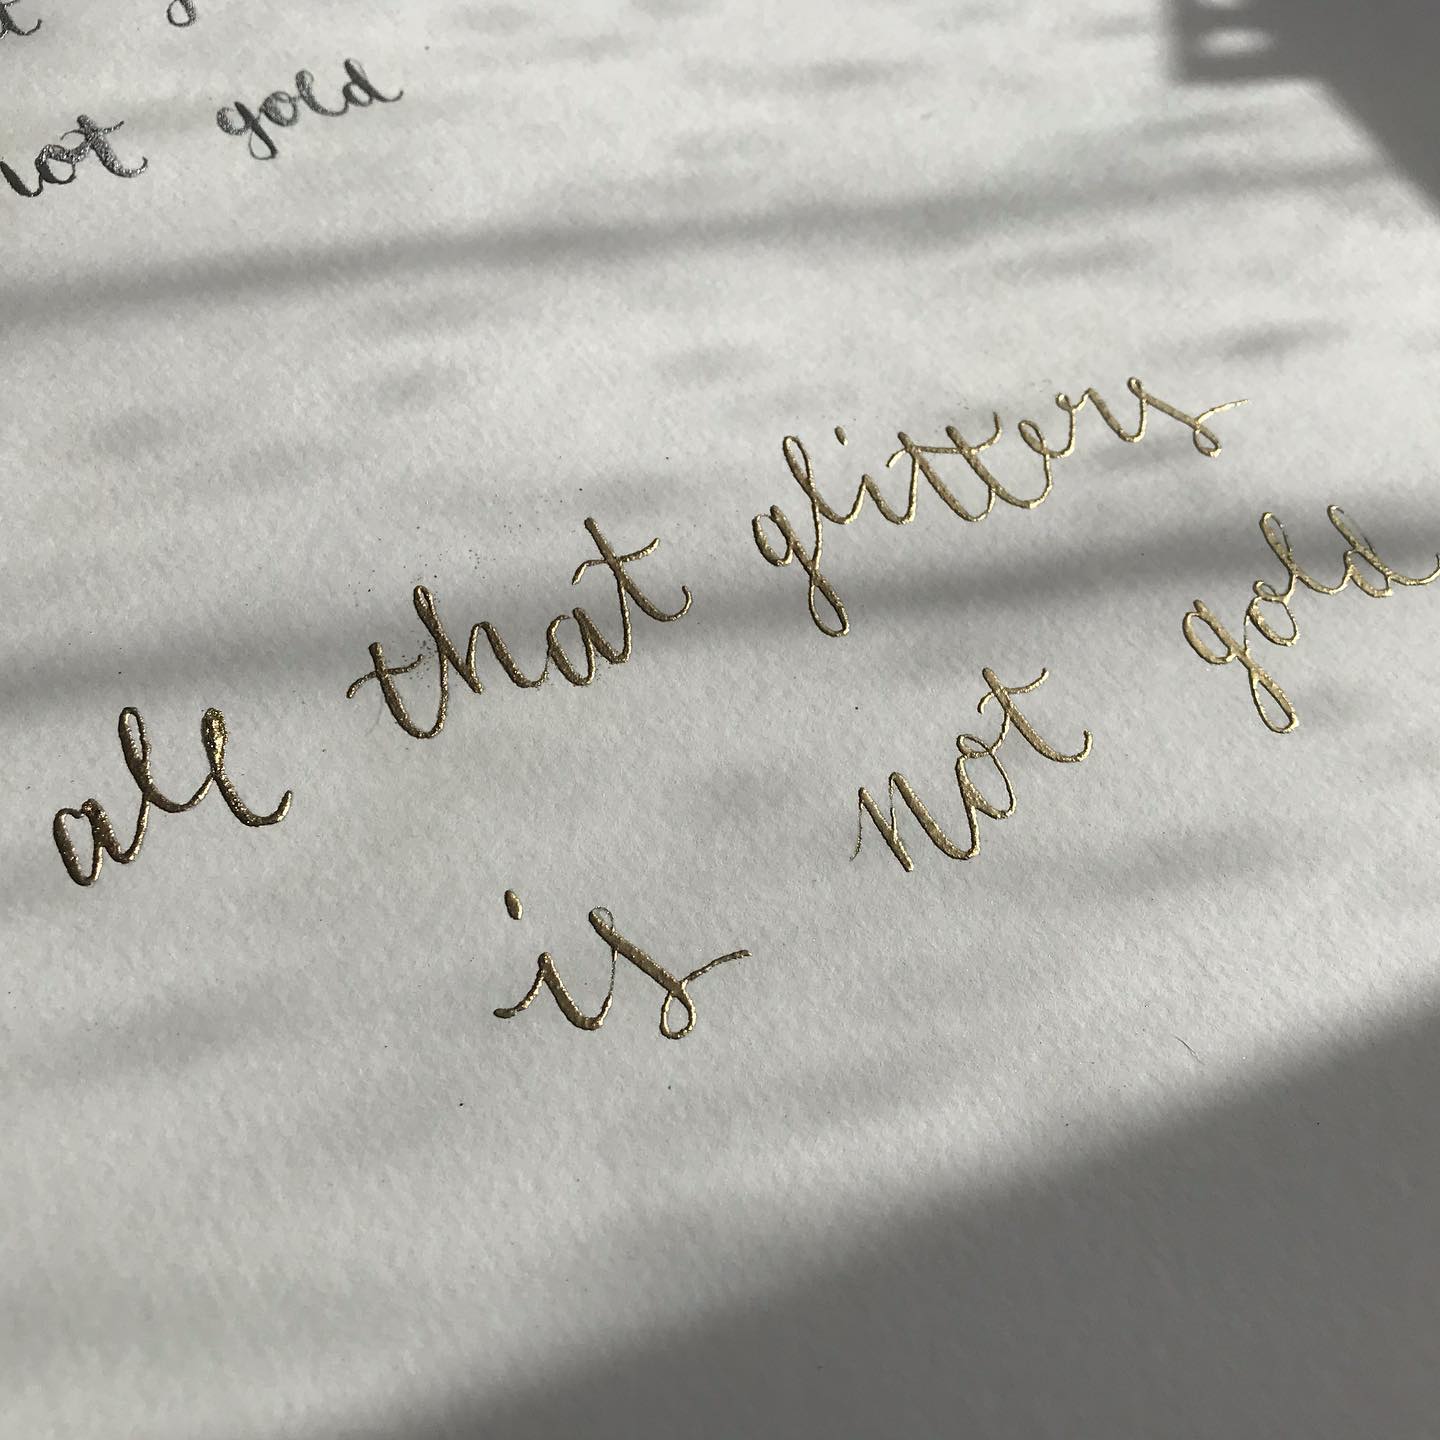 not gold
all that glitters
is not gold